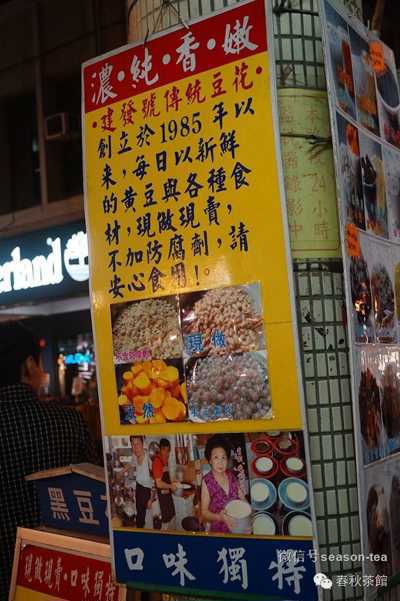 濃·純·香·嫩
·建發號傳統豆花·
創立於1985年以
來，每日以新鮮
的黃豆與各種食
材，現做現賣，
不加防腐劑，請
安心食用！。
現做
天然
口味獨特
erland
24小時
黑豆花
現做現賣·口味
微信号season-tea
春秋茶館